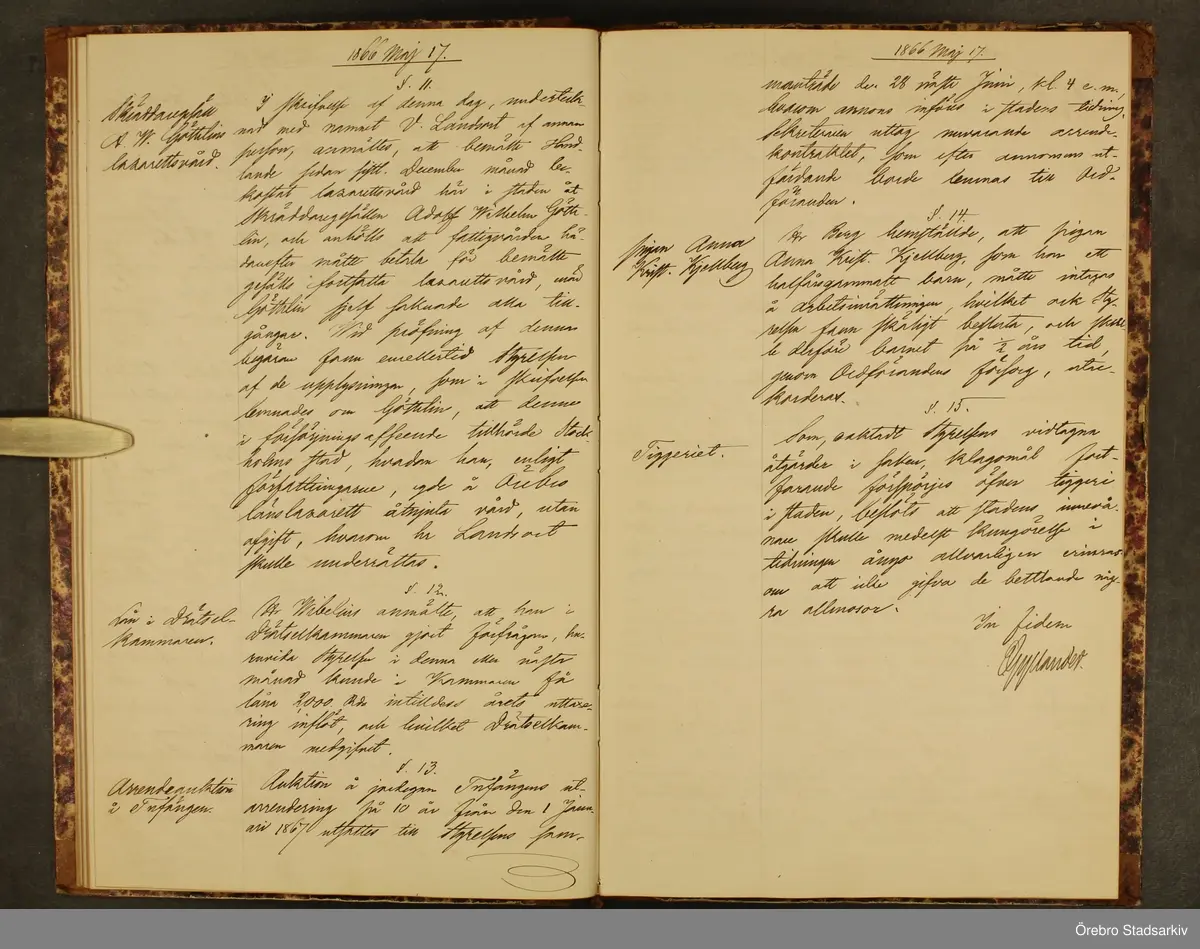 1866 Maj 17.
§. 11.
Skräddaregesäll
A. W. Göthlins
lazarettsvård.
I skrifvelse af denna dag, underteck-
nad med namnet V. Landart af annan
person, anmältes, att bemälte Hand-
lande sedan sistl. December månad be-
kostat lazarettsvård här i staden åt
Skräddaregesällen Adolf Wilhelm Göth-
lin, och anhölls att fattigvården hä-
danefter måtte betala för bemälte
gesälls fortsatta lazarettsvård, enär
Göthlin sjelf saknade alla till-
gångar. Vid pröfning af denna
begäran fann emellertid Styrelsen
af de upplysningar, som i skrifvelsen
lemnades om Göthlin, att denne
i försörjningsafseende tillhörde Stock-
holms stad, hvadan han, enligt
författningarne, egde å Örebro
länslazarett åtnjuta vård, utan
afgift, hvarom hr Landart
skulle underrättas.
§. 12.
Lån i Drätsel-
kammaren.
Hr Wibelius anmälte, att han i
Drätselkammaren gjort förfrågan, hu-
ruvida Styrelsen i denna eller nästa
månad kunde i Kammaren få
låna 2,000 Rdr intilldess årets uttaxe-
ring inflöt, och hvilket Drätselkam-
maren medgifvit.
§. 13.
Arrendeauktion
å Tnfången.
Auktion å jordegan Tnfångens ut-
arrendering på 10 år från den 1 Janu-
ari 1867 utsattes till Styrelsens sam-
1866 Maj 17.
manträde den 28 nästa Juni, kl. 4 e. m.,
hvarom annons införes i stadens tidning.
Sekreteraren uttog nuvarande arrende-
kontraktet, som efter annonsens ut-
färdande borde lemnas till Ord-
föranden.
§. 14.
pigan Anna
Krist. Kjellberg
Hr Berg hemställde, att pigan
Anna Krist. Kjellberg, som har ett
halfårsgammalt barn, måtte intagas
å arbetsinrättningen, hvilket ock Sty-
relsen fann skäligt besluta, och skul-
le derföre barnet på ½ års tid,
genom Ordförandens försorg, utac-
korderas.
§. 15.
Tiggeriet.
Som, oaktadt Styrelsens vidtagna
åtgärder i saken, klagomål fort-
farande förspörjes öfver tiggeri
i staden, beslöts att stadens innevå-
nare skulle medelst kungörelse i
tidningen ånyo allvarligen erinras
om att icke gifva de bettlande någ-
ra allmosor.
In fidem
Örebro Stadsarkiv